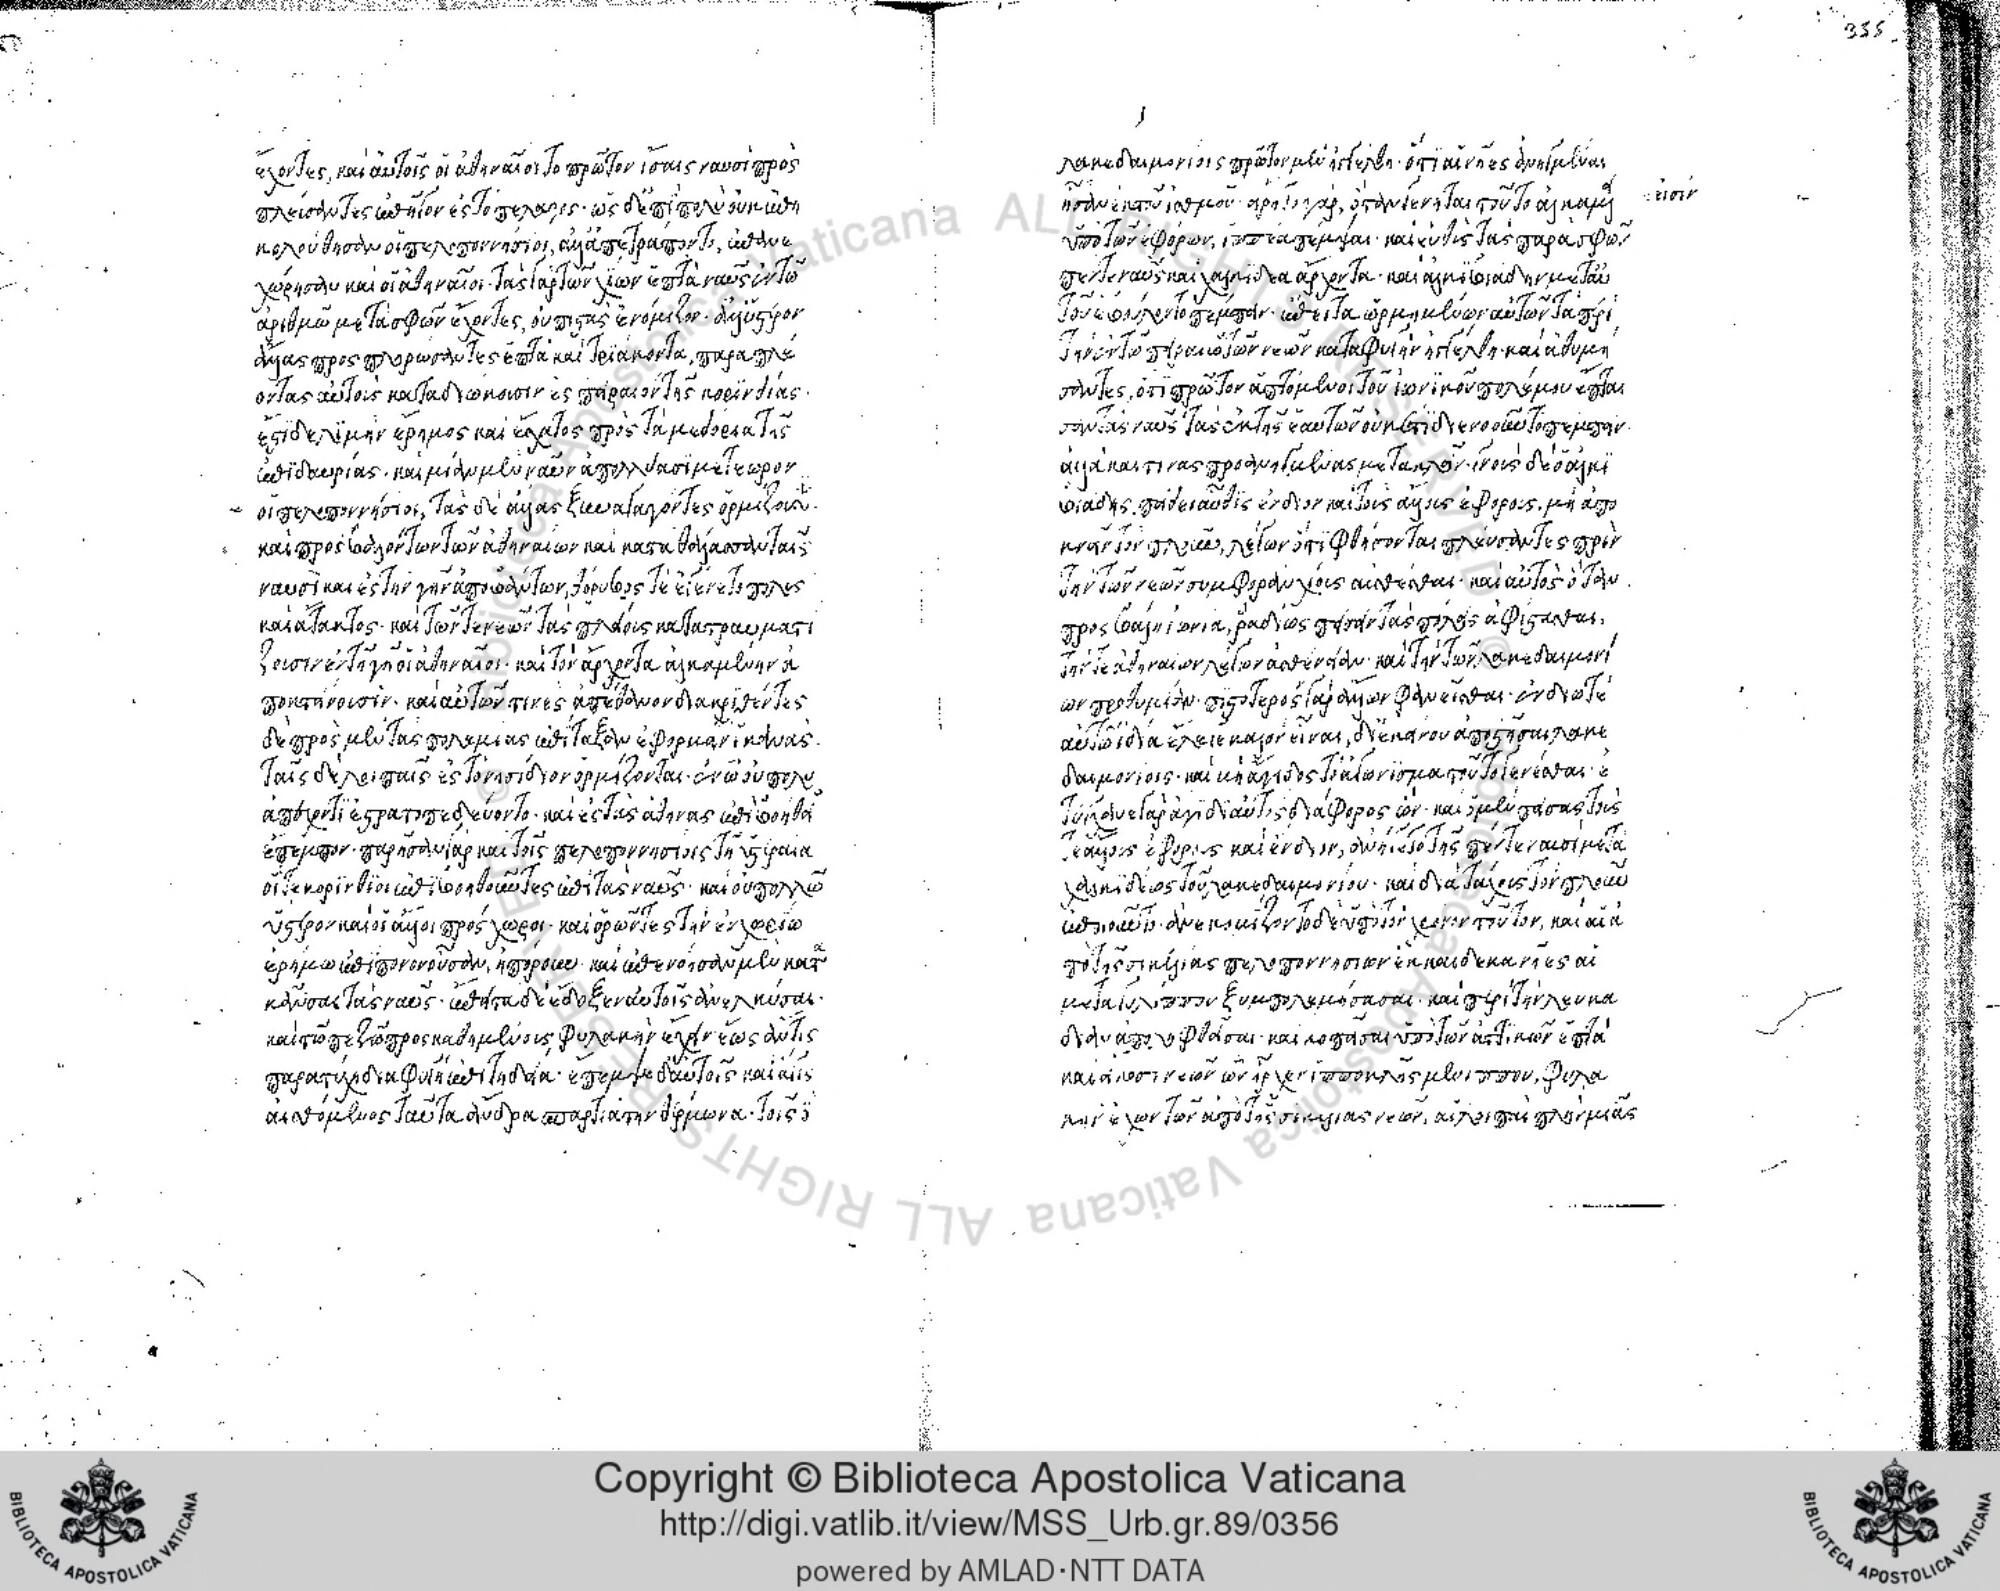 ἔχοντες, καὶ αὐτοῖς οἱ ἀθηναῖοι τὸ πρῶτον ἴσαις ναυσὶ προσ
πλεύσαντες ὑπῆγον ἐς τὸ πέλαγος· ὡς δ' ἐπὶ πολὺ οὐκ ἐπη
κολούθησαν οἱ πελοποννήσιοι, ἀλλ' ἀπετράποντο, ἐπανε
χώρησαν καὶ οἱ ἀθηναῖοι· τὰς γὰρ τῶν χίων ἑπτὰ ναῦς ἐν τῶ
ἀριθμῶ μετὰ σφῶν ἔχοντες, οὐ πιστὰς ἐνόμιζον· ἀλλ' ὕστερον
ἄλλας προσπληρώσαντες ἑπτὰ καὶ τριάκοντα, παραπλέ
οντας αὐτοὺς καταδιώκουσιν ἐς πειραιὸν τῆς κορινθίας·
ἔστι δὲ λιμὴν ἐρῆμος καὶ ἔσχατος πρὸς τὰ μεθόρια τῆς
ἐπιδαυρίας· καὶ μίαν μὲν ναῦν ἀπολλύασι μετέωρον
οἱ πελοποννήσιοι, τὰς δὲ ἄλλας ξυναγαγόντες ὁρμίζουσιν·
καὶ προσβαλόντων τῶν ἀθηναίων καὶ κατὰ θάλασσαν ταῖς
ναυσὶ καὶ ἐς τὴν γῆν ἀποβάντων, θόρυβός τε ἐγένετο πολὺς
καὶ ἄτακτος· καὶ τῶν τε νεῶν τὰς πλείους κατατραυματί
ζουσιν ἐν τῆ γῆ οἱ ἀθηναῖοι· καὶ τὸν ἄρχοντα ἀλκαμένην ἀ
ποκτείνουσιν· καὶ αὐτῶν τινες ἀπέθανον διακριθέντες
δὲ πρὸς μὲν τὰς πολεμίας ἐπέταξαν ἐφορμεῖν ἱκανάς·
ταῖς δὲ λοιπαῖς ἐς τὸ νησίδιον ὁρμίζονται· ἐν ὧ οὐ πολὺ
ἀπέχοντι ἐστρατοπεδεύοντο· καὶ ἐς τὰς ἀθήνας ἐπὶ βοήθει
ἔπεμπον· παρῆσαν γὰρ καὶ τοῖς πελοποννησίοις τῆ ὑστεραία
οἵ τε κορίνθιοι ἐπιβοηθοῦντες ἐπὶ τὰς ναῦς· καὶ οὐ πολλῶ
ὕστερον καὶ οἱ ἄλλοι πρόσχωροι· καὶ ὁρῶντες τὴν ἐν χωρίω
ἐρήμω ἐπίπονον οὖσαν, ἠπόρουν· καὶ ἐπενόησαν μὲν κατα
καῦσαι τὰς ναῦς· ἔπειτα δὲ ἔδοξεν αὐτοῖς ἀνελκύσαι·
καὶ τῶ πεζῶ προσκαθημένους φυλακὴν ἔχειν ἕως ἄν τις
παρατύχη διαφυγὴ ἐπιτηδεία· ἔπεμψε δ' αὐτοῖς καὶ ἆγις
αἰσθόμενος ταῦτα ἄνδρα σπαρτιάτην θέρμωνα· τοῖς δ
λακεδαιμονίοις πρῶτον μὲν ἠγγέλθη· ὅτι αἱ νῆες ἀνηγμέναι
εἰσὶν
ἦσαν ἐκ τοῦ ἰσθμοῦ· εἴρητο γὰρ, ὅταν γένηται τοῦτο ἀλκαμένει
ὑπὸ τῶν ἐφόρων, ἱππέα πέμψαι· καὶ εὐθὺς τὰς παρὰ σφῶν
πέντε ναῦς καὶ χαλκιδέα ἄρχοντα· καὶ ἀλκιβιάδην μετ' αὐ
τοῦ ἐβούλοντο πέμπειν· ἔπειτα ὡρμημένων αὐτῶν τὰ περὶ
τὴν ἐν τῶ πειραιῶ τῶν νεῶν καταφυγὴν ἠγγέλθη· καὶ ἀθυμή
σαντες, ὅτι πρῶτον ἁπτόμενοι τοῦ ἰωνικοῦ πολέμου ἔπται
σαν τὰς ναῦς τὰς ἐκ τῆς ἑαυτῶν οὐκέτι διενοοῦντο πέμπειν·
ἀλλὰ καί τινας προανηγμένας μετακαλεῖν· γνοὺς δὲ ὁ ἀλκι
βιάδης, πείθει αὖθις ἔνδιον καὶ τοὺς ἄλλους ἐφόρους, μὴ ἀπο
κνῆσαι τὸν πλοῦν, λέγων ὅτι φθήσονται πλεύσαντες πρὶν
τὴν τῶν νεῶν συμφορὰν χίους αἰσθέσθαι· καὶ αὐτὸς ὅταν
προσβάλη ἰωνία, ῥαδίως πείσειν τὰς πόλεις ἀφίστασθαι,
τήν τε ἀθηναίων λέγων ἀσθένειαν· καὶ τὴν τῶν λακεδαιμονί
ων προθυμίαν· πιστότερος γὰρ ἄλλων φανεῖσθαι· ἐνδίω τε
αὐτῶ ἰδία ἔλεγε καλὸν εἶναι, δι' ἐκείνου ἀποστῆσαι λακε
δαιμονίοις· καὶ μὴ ἄγιδος τὸ ἀγώνισμα τοῦτο γενέσθαι· ἐ
τύγχανε γὰρ ἄγιδι αὐτὸς διάφορος ὤν· καὶ ὁ μὲν πείσας τούς
τε ἄλλους ἐφόρους καὶ ἔνδιον, ἀνήγετο τῆς πέντε ναυσὶ μετὰ
χαλκιδέως τοῦ λακεδαιμονίου· καὶ διὰ τάχους τὸν πλοῦν
ἐποιοῦντο· ἀνεκομίζοντο δὲ ὑπὸ τὸν χρόνον τοῦτον, καὶ αἱ ἀ
πὸ τῆς σικελίας πελοποννησίων ἑκκαίδεκα νῆες αἱ
μετὰ γυλίππου ξυμπολεμήσασαι· καὶ περὶ τὴν λευκα
δίαν ἀποληφθεῖσαι· καὶ κοπεῖσαι ὑπὸ τῶν ἀττικῶν ἑπτὰ
καὶ εἴκοσι νεῶν ὧν ἦρχεν ἱπποκλῆς μενίππου, φυλα
κὴν ἔχων τῶν ἀπὸ τῆς σικελίας νεῶν, αἱ λοιπαὶ πλὴν μιᾶς
Copyright © Biblioteca Apostolica Vaticana
http://digi.vatlib.it/view/MSS_Urb.gr.89/0356
powered by AMLAD·NTT DATA